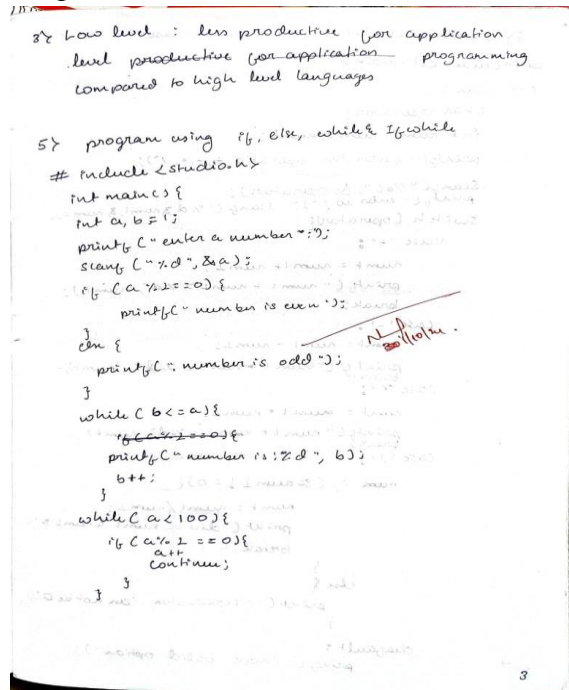 3) Low level : less productive for application
level productive for application programming
compared to high level languages
5) program using if, else, while & If while
# include <studio.h>
int main() {
int a, b = 1;
printf ("enter a number :");
scanf ("%d", &a);
if (a % 2 == 0) {
printf(" number is even ");
}
else {
printf(" number is odd ");
}
while ( b <= a) {
if (a % 2 == 0) {
printf (" number is : %d ", b);
b++;
}
while ( a < 100) {
if ( a % 2 == 0) {
a++
continue;
}
}
3